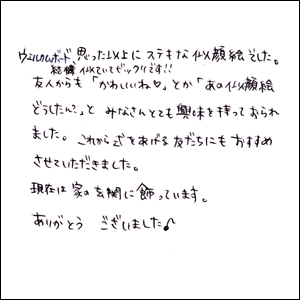 ウェルカムボード、思った以上にステキな似顔絵でした。
結構似ていてビックリです!!
友人からも「かわいいね♡」とか「あの似顔絵
どうしたん?」と みなさんとても興味を持っておられ
ました。これから式をあげる友だちにも おすすめ
させていただきました。
現在は 家の玄関に飾っています。
ありがとう ございました♪